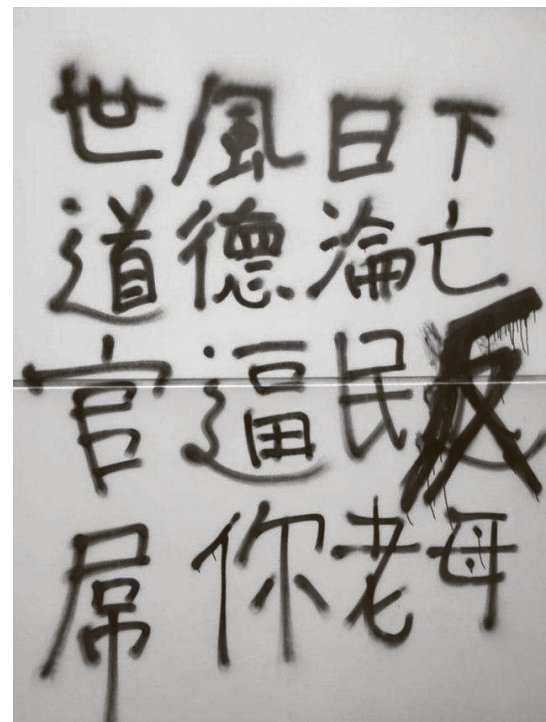 世風日下
道德淪亡
官逼民反
屌你老母